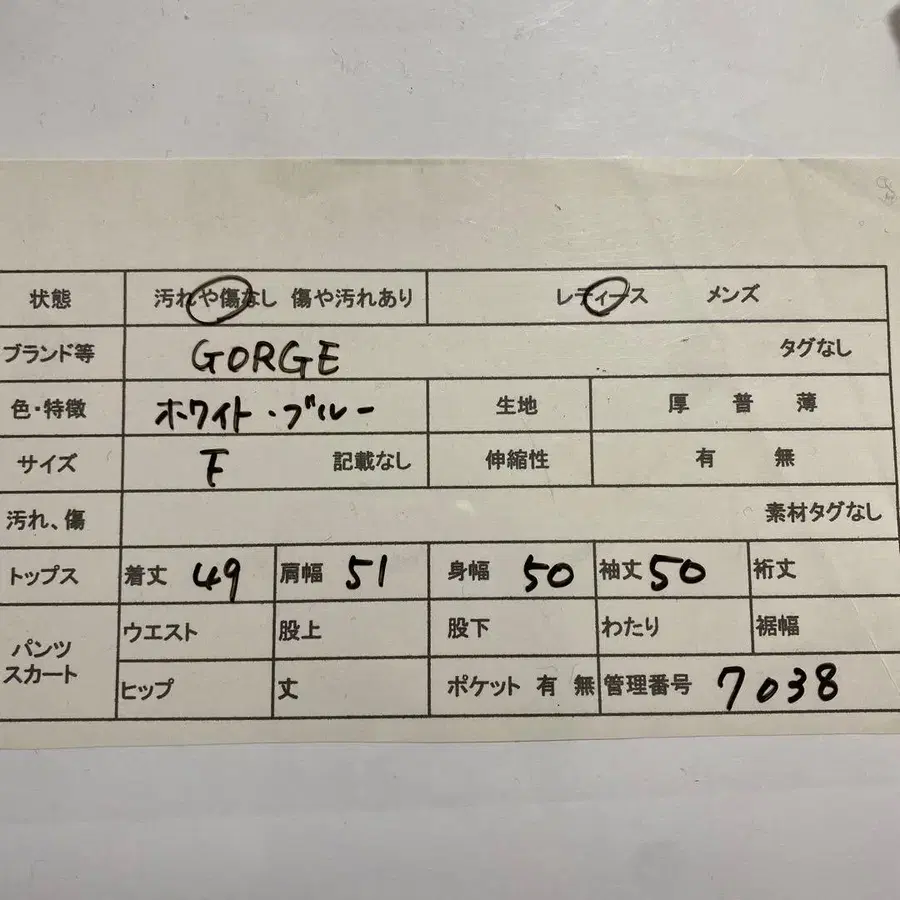 状態 汚れや傷なし 傷や汚れあり レディース メンズ
ブランド等 GORGE タグなし
色・特徴 ホワイト・ブルー 生地 厚 普 薄
サイズ F 記載なし 伸縮性 有 無
汚れ、傷 素材タグなし
トップス 着丈 49 肩幅 51 身幅 50 袖丈 50 裄丈
パンツ スカート ウエスト 股上 股下 わたり 裾幅
ヒップ 丈 ポケット 有 無 管理番号 7038